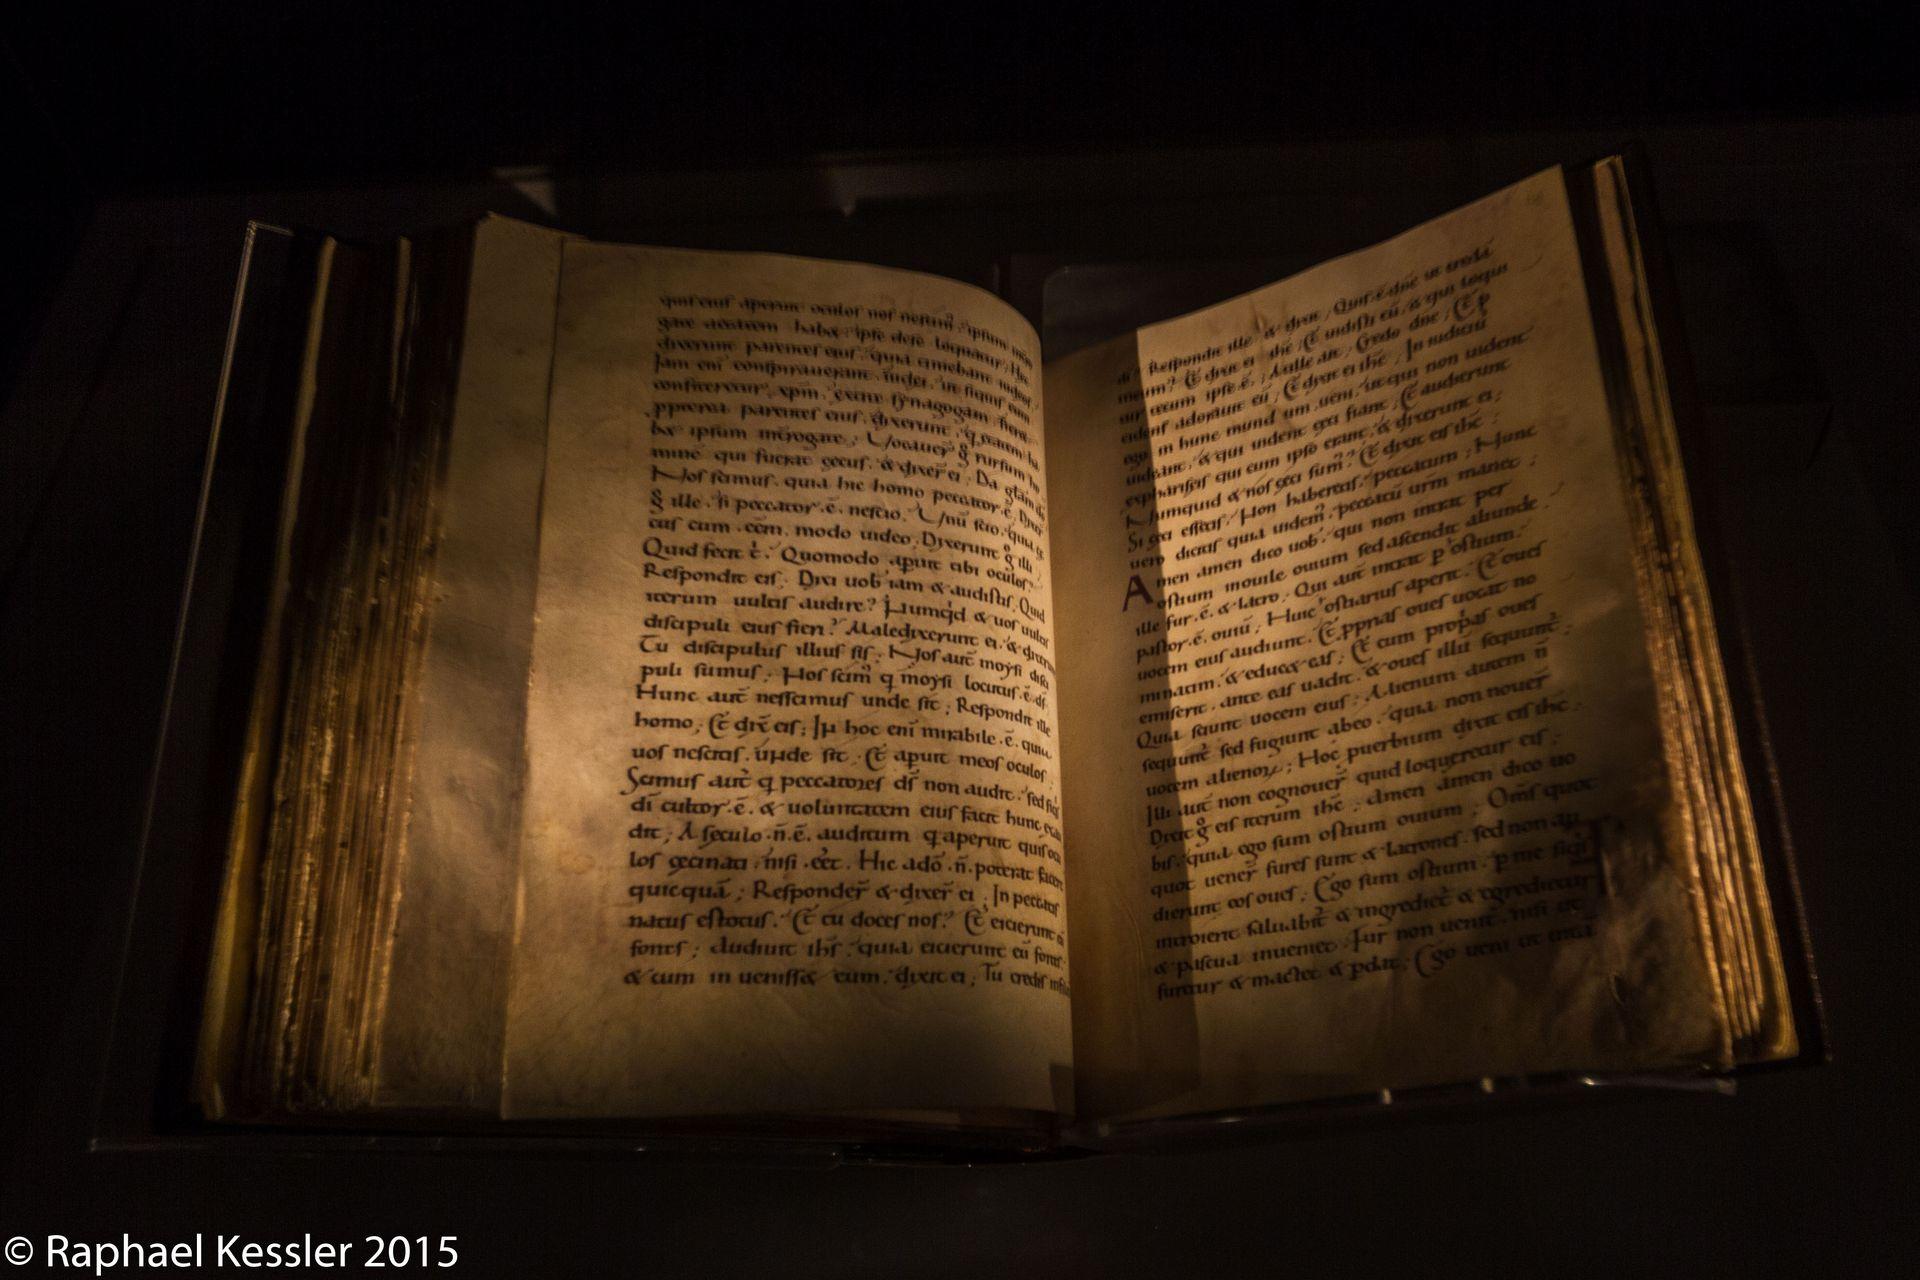 quis eius aperuit oculos nos nescim᷒; ipsum
gate aetatem habæ; ipse dese loquatur; Hęc
dixerunt parentes eius, quia timebant iudeos;
Jam eni conspirauerant iudei, ut siquis eum
confiteretur xp̄m, extra synagogam fieret.
ppterea parentes eius dixerunt, q etatem ha
bæ ipsum int̄rogate; Vocauer̄ g̊ rursum ho
minē qui fuerat cęcus, & dixer̄ ei; Da gl̄am dō
Nos scimus quia hic homo peccator .ē. Dixit
g̊ ille. si peccator .ē. nescio. Vnū scio. quia cę
cus cum .eēm. modo uideo; Dixerunt g̊ illi;
Quid fecit t̄. Quomodo aꝑuit tibi oculos?
Respondit eis. Dixi uob̄ iam & audistis. Quid
iterum uultis audire? Numq̇d & uos uultis
discipuli eius fieri? Maledixerunt ei. & dixerunt
Tu discipulus illius sis; Nos aut̄ moẏsi disci
puli sumus; Nos scim᷒ q moẏsi locutus .ē. ds̄
Hunc aut̄ nesscimus unde sit; Respondit ille
homo; Et dix̄ eis; In hoc eni mirabile .ē. quia
uos nescitis. unde sit. Et aꝑuit meos oculos;
Scimus aut̄ q peccatores ds̄ non audit. sed siq̇s
dī cultor .ē. & uoluntatem eius facit hunc exau
dit; A sęculo .n̄.ē. auditum q aperuit quis ocu
los cęcinati. nisi .eēt. Hic adō .n̄. poterat facere
quicquā; Responder̄ & dixer̄ ei; In peccatis
natus es totus. Et tu doces nos? Et eicierunt eū
foras; Audiuit ih̄s. quia eicierunt eū foras.
& cum in uenissæ eum. dixit ei; Tu credis in filiū
di? Respondit ille & dixit; Quis .ē. dn̄e ut credā
in eum? Et dixit ei ih̄c; Et uidisti eū. & qui loqui
tur tecum ipse .ē.; At ille ait; Credo dn̄e; Et p
cidens adorauit eū; Et dixit ei ih̄c; In iudiciū
ego in hunc mundum ueni, ut qui non uident
uideant, & qui uident cęci fiant; Et audierunt
ex phariseis qui cum ipso erant, & dixerunt ei;
Numquid & nos cęci sum᷒? Et dixit eis ih̄c;
Si cęci essetis. Non haberetis peccatum; Nunc
uero dicitis quia uidem᷒. peccatū urm manet;
Amen amen dico uob̄. qui non intrat per
ostium in ouile ouium sed ascendit aliunde
ille fur .ē. & latro; Qui aut̄ intrat ꝑ ostium.
pastor .ē. ouiū; Huic ostiarius aperit. Et oues
uocem eius audiunt. Et ꝓprias oues uocat no
minatim. & educæ eas; Et cum proprias oues
emiserit. ante eas uadit. & oues illū sequunt̄.
Quia sciunt uocem eius; Alienum autem n̄
sequunt̄ sed fugiunt ab eo. quia non nouer̄
uocem alienoꝝ; Hoc puerbium dixit eis ih̄c;
Illi aut̄ non cognouer̄ quid loqueretur eis;
Dixit g̊ eis iterum ih̄c; Amen amen dico uo
bis. quia ego sum ostium ouium; Om̄s quot
quot uener̄ fures sunt & latrones. sed non au
dierunt eos oues; Ego sum ostium. ꝑ me siq̇s
introierit saluabit̄ & ingrediet̄ & egredietur
& pascua inueniet. Fur non uenit. nisi ut
furetur & mactet & ꝑdat; Ego ueni ut uitā
© Raphael Kessler 2015